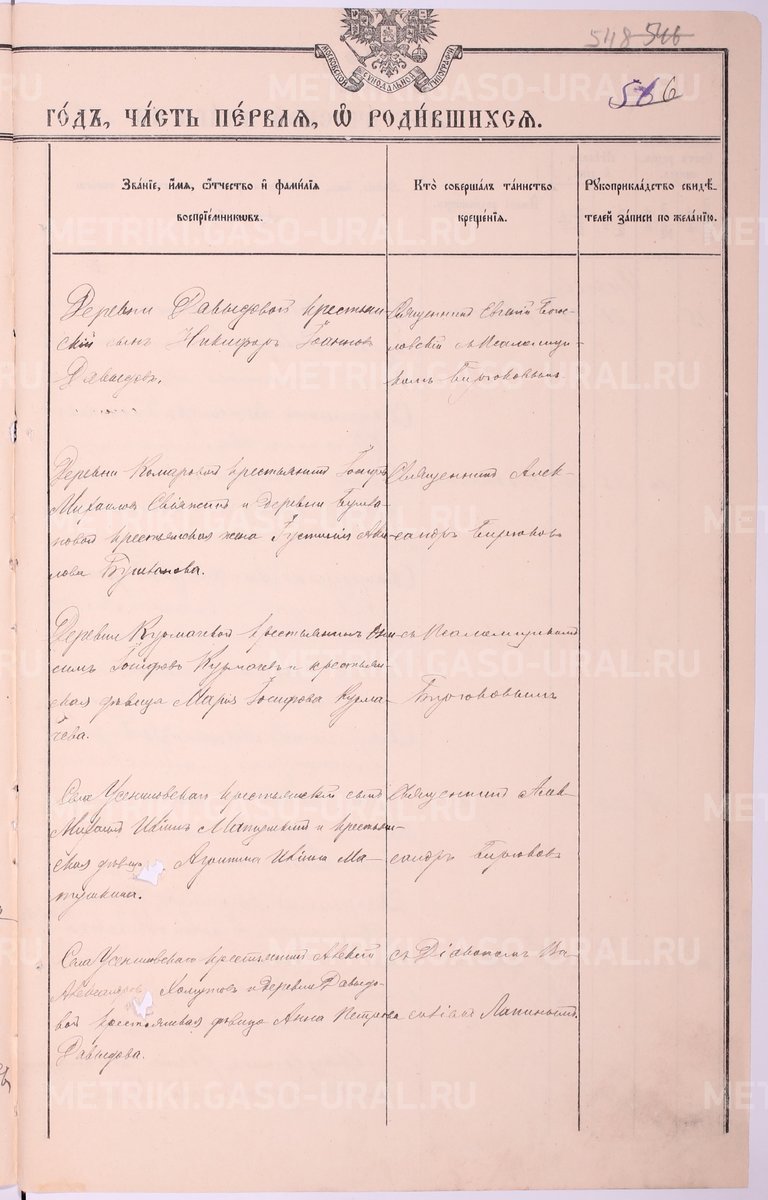 548 546
566
МОСКОВСКОЙ СѴНОДАЛЬНОЙ ТИПОГРАФІИ
ГО́ДЪ, ЧА́СТЬ ПЕ́РВАЯ, Ѽ РОДИ́ВШИХСЯ.
Зва́ніе, и҆́мя, ѻ҆́тчество и҆ фами́лія
воспріе́мниковъ.
Кто̀ соверша́лъ та́инство
креще́нія.
Рꙋкоприкла́дство свидѣ́-
телей за́писи по жела́нію.
Деревни Давыдовой крестьян-
скій сынъ Никифоръ Іоанновъ
Давыдовъ.
Священникъ Евгеній Бого-
словскій съ псаломщи-
комъ Бирюковымъ
Деревни Комаровой крестьянинъ
Михаиловъ и деревни
крестьянская жена Іустинія Аки-
лова
Священникъ Алек-
сандръ Бирюковъ
Деревни Курмачевой крестьянинъ Они-
симъ Іосифовъ Курмачевъ и крестьян-
ская дѣвица Марія Іосифова Курма-
чева.
съ псаломщикомъ
Бирюковымъ
Села крестьянскій сынъ
Михаилъ и крестьян-
ская дѣвица Агриппина Ма-
тушкина.
Священникъ Алек-
сандръ Бирюковъ
Села крестьянинъ Алексій
Александровъ и деревни Давыдо-
вой крестьянская дѣвица Анна Петрова
Давыдова.
съ Діакономъ Ва-
Лапинымъ.
METRIKI.GASO-URAL.RU